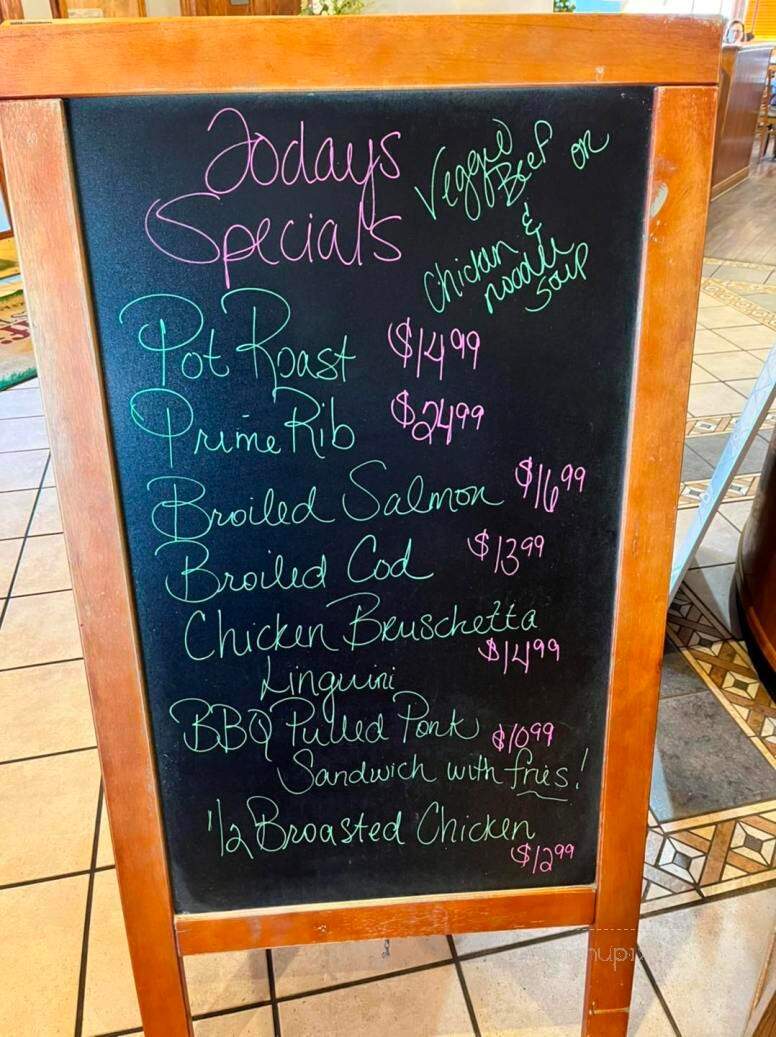 Todays
Specials
Veggie
Beef or
&
Chicken
noodle
soup
Pot Roast $14.99
Prime Rib $24.99
Broiled Salmon $16.99
Broiled Cod $13.99
Chicken Bruschetta
Linguini $14.99
BBQ Pulled Pork $10.99
Sandwich with fries!
1/2 Broasted Chicken
$12.99